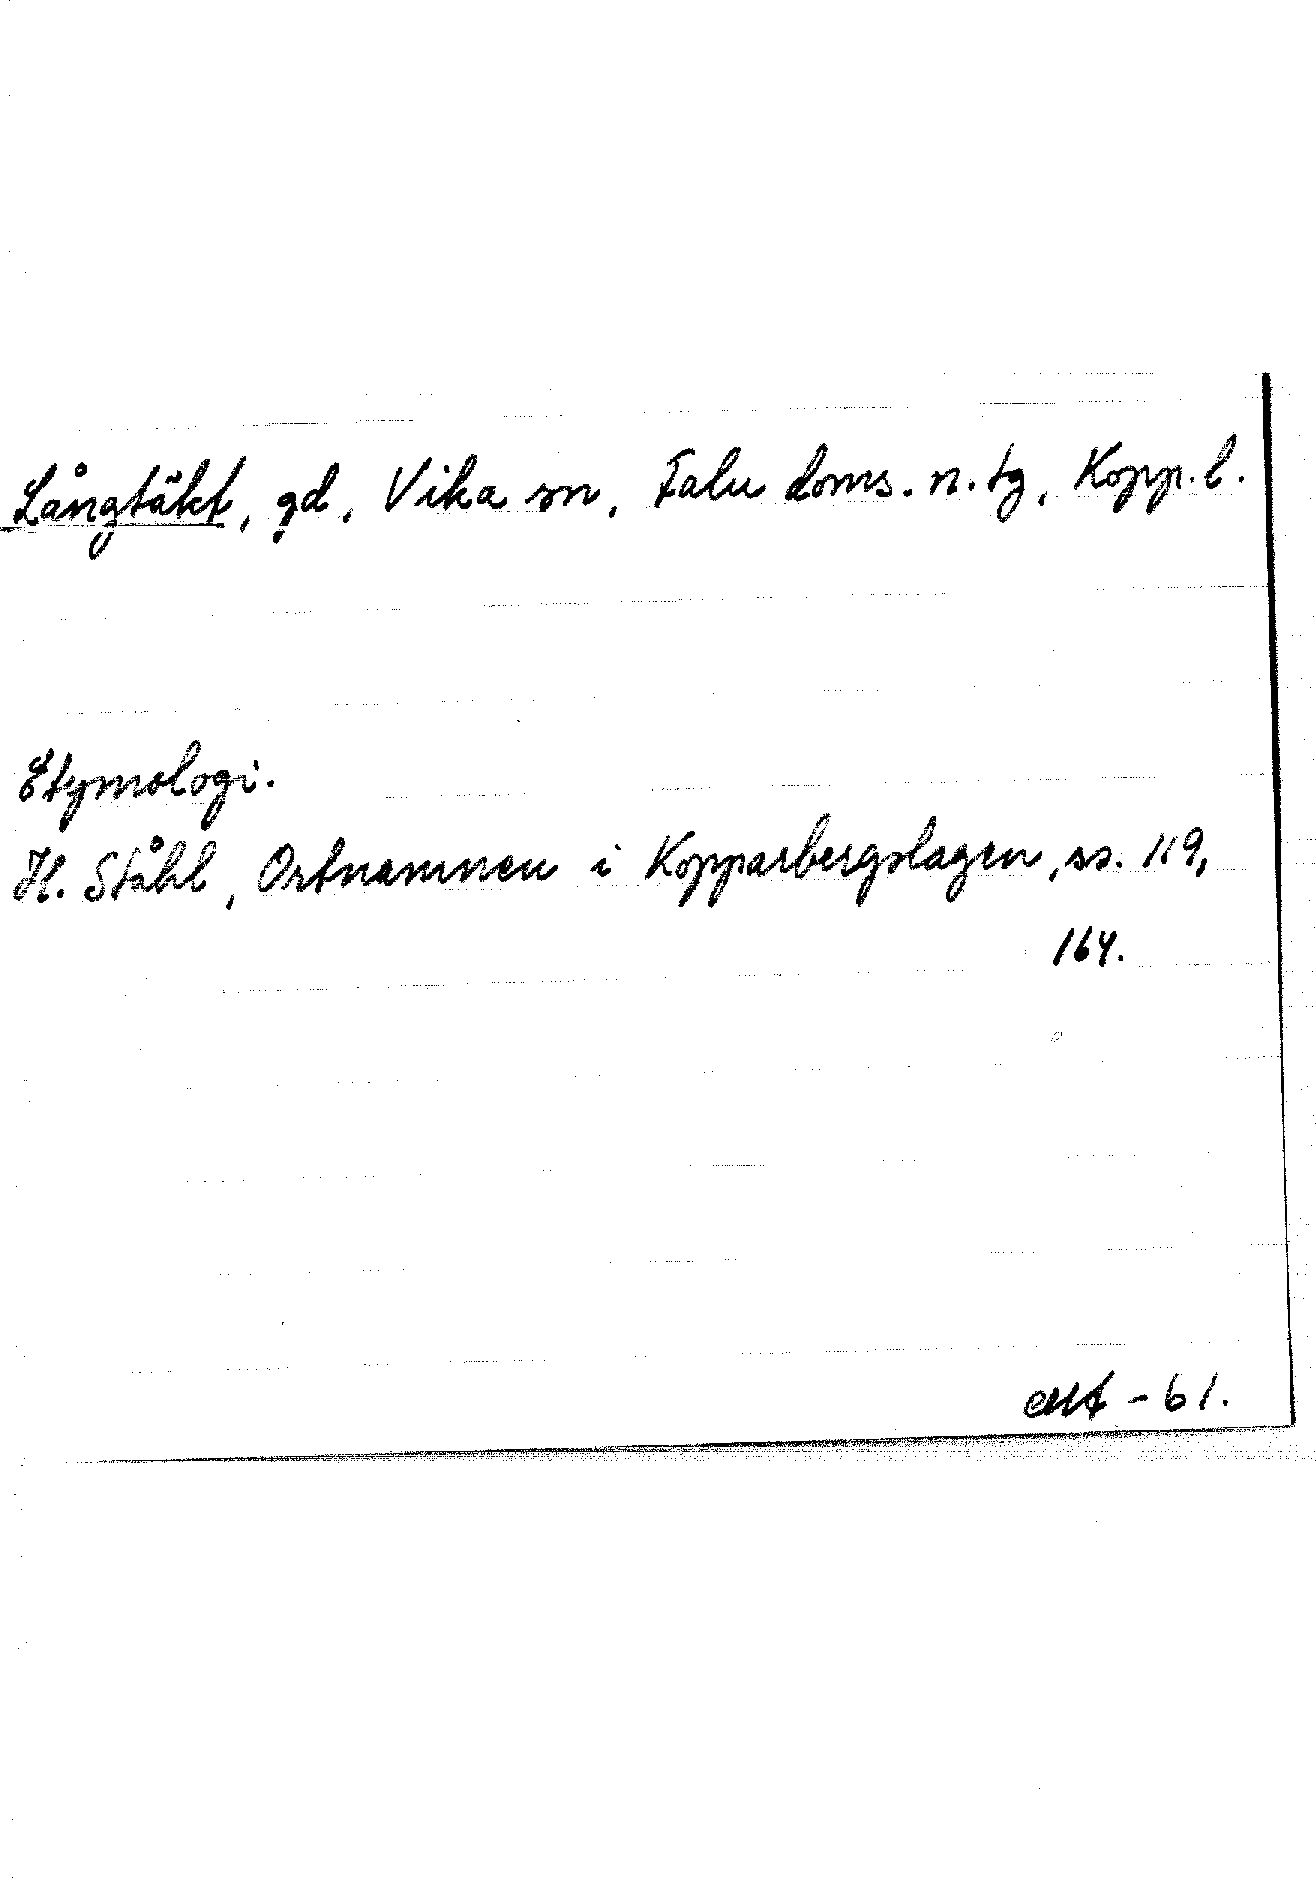 Långtäkt, gd, Vika sn, Falu doms. n. tg, Kopp. l.
Etymologi.
H. Ståhl, Ortnamnen i Kopparbergslagen, ss. 119,
164.
-61.